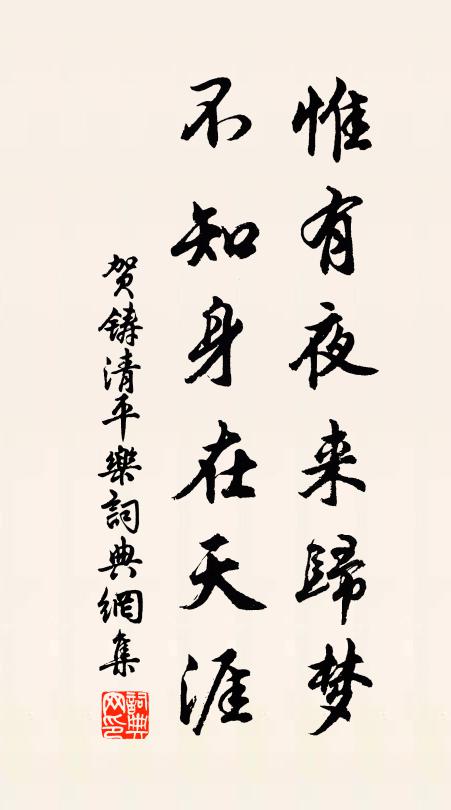 惟有夜来歸梦
不知身在天涯
贺鑄清平樂詞典網集
詞典网印